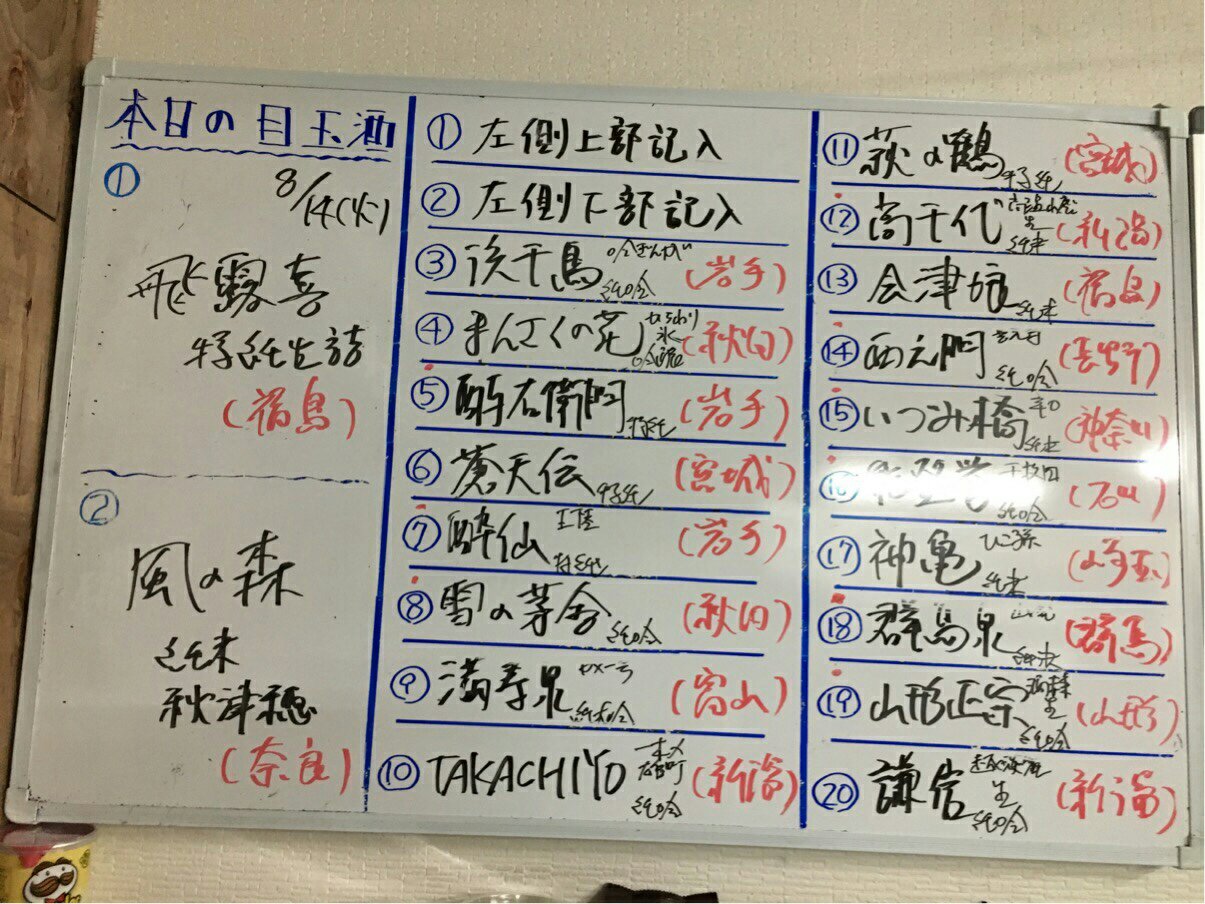 本日の目玉酒
①
8/14(火)
飛露喜
特純生詰
(福島)
②
風の森
純米
秋津穂
(奈良)
① 左側上部記入
② 左側下部記入
③ 浜千鳥 吟ぎんが 純吟 (岩手)
④ まんさくの花 かちわり 氷 (秋田)
⑤ 酉与右衛門 特純 (岩手)
⑥ 蒼天伝 特純 (宮城)
⑦ 酔仙 特純 (岩手)
⑧ 雪の茅舎 純吟 (秋田)
⑨ 満寿泉 純米吟 (富山)
⑩ TAKACHIYO 雄町 純吟 (新潟)
⑪ 萩の鶴 特純 (宮城)
⑫ 高千代 生 純米 (新潟)
⑬ 会津娘 純米 (福島)
⑭ 西之門 純吟 (長野)
⑮ いづみ橋 純米 (神奈川)
⑯ 千枚田 純吟 (石川)
⑰ 神亀 ひこ孫 純米 (埼玉)
⑱ 群馬泉 純米 (群馬)
⑲ 山形正宗 生 純吟 (山形)
⑳ 謙信 生 純吟 (新潟)